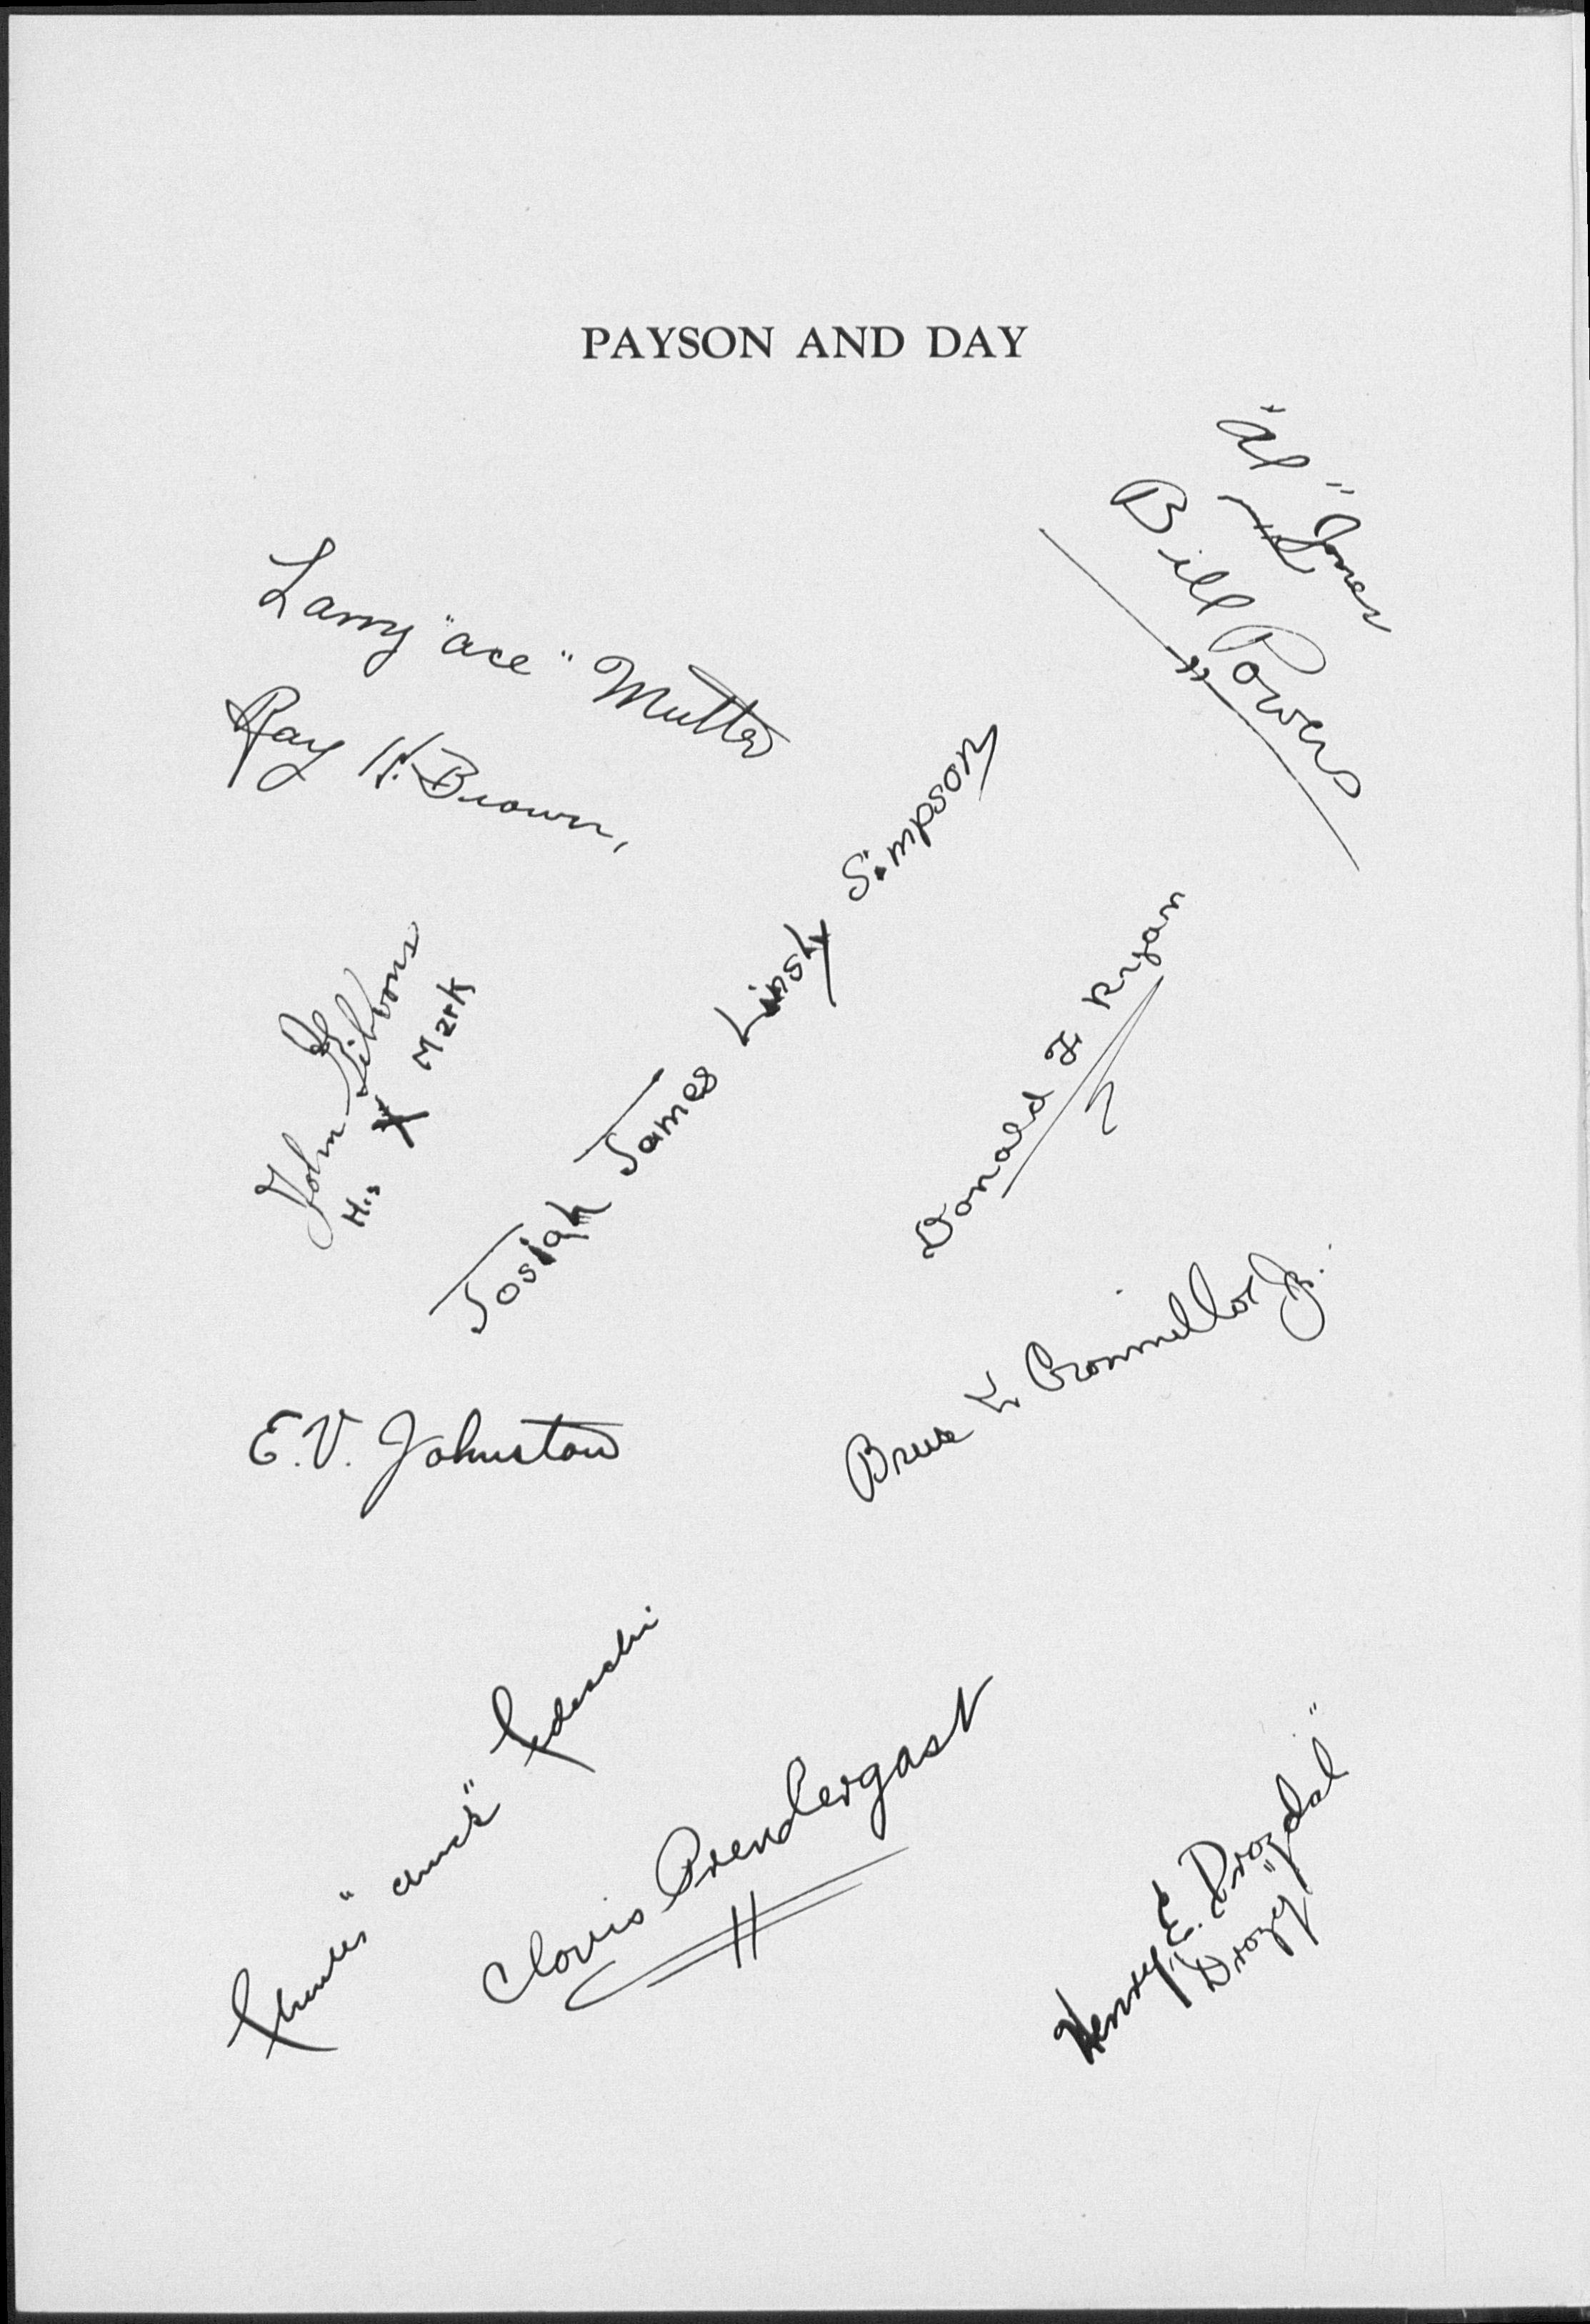 PAYSON AND DAY
"Al" Jones
Bill Powers
Larry "ace" Mutter
Ray H. Brown,
John Gibbons
His X Mark
Josiah James Linsly Simpson
Donald F Ryan
Bruce K Crommellor Jr.
E.V. Johnston
Charles
Clovis Prendergast
Henry E. Drozdal
"Drozy"